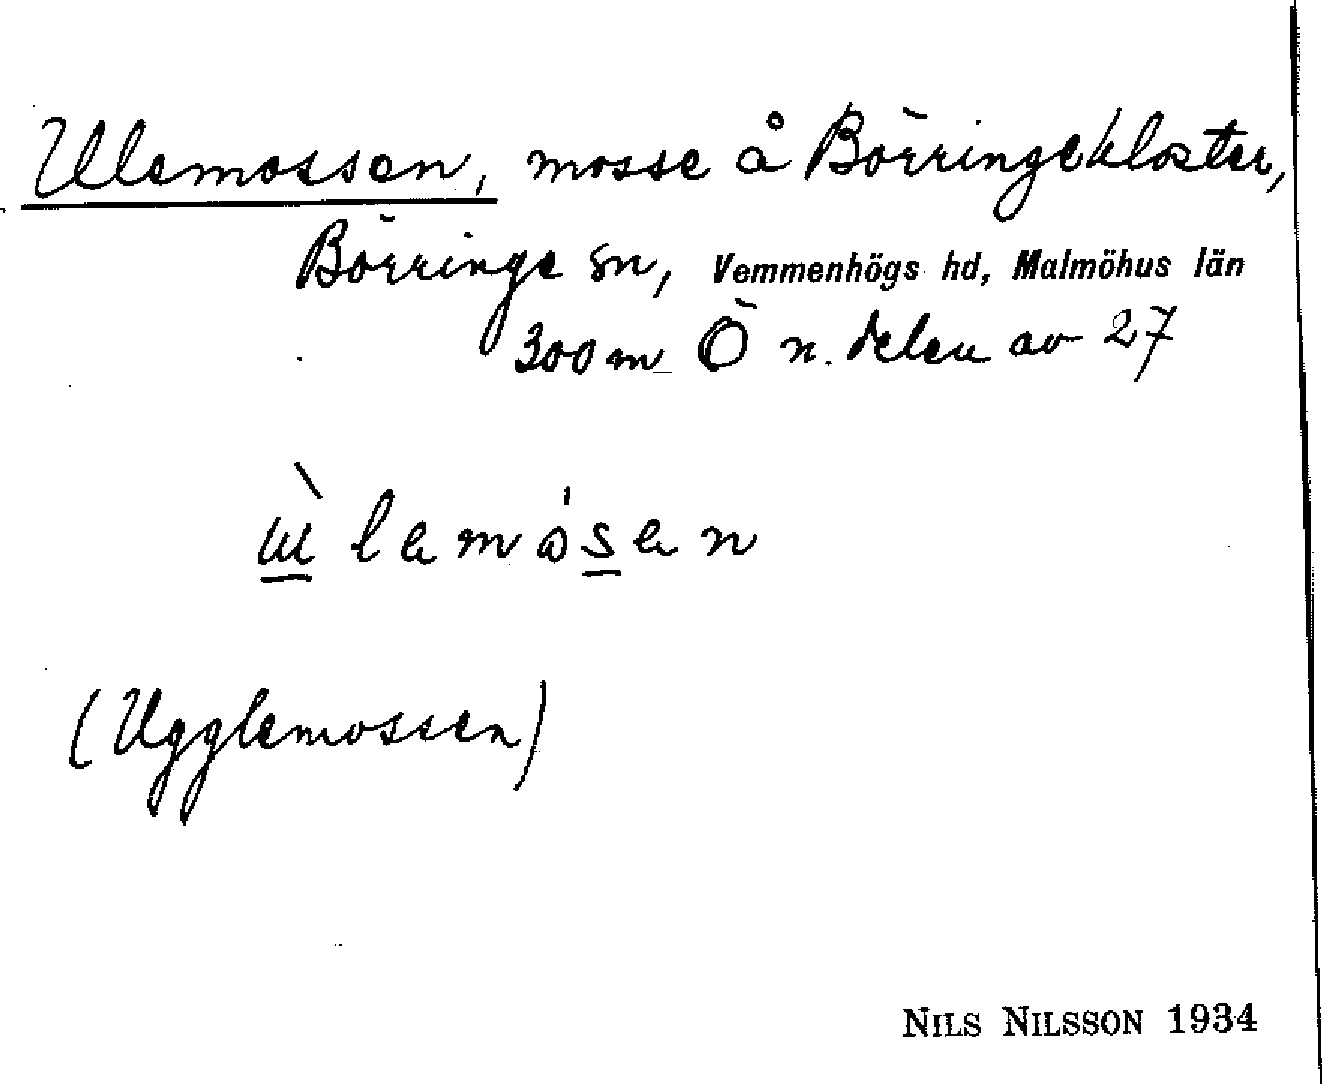 Ulemossen, mosse å Börringekloster,
Börringe sn, Vemmenhögs hd, Malmöhus län
300 m Ö n. delen av 27
ɯ̀lemósen
(Ugglemossen)
NILS NILSSON 1934